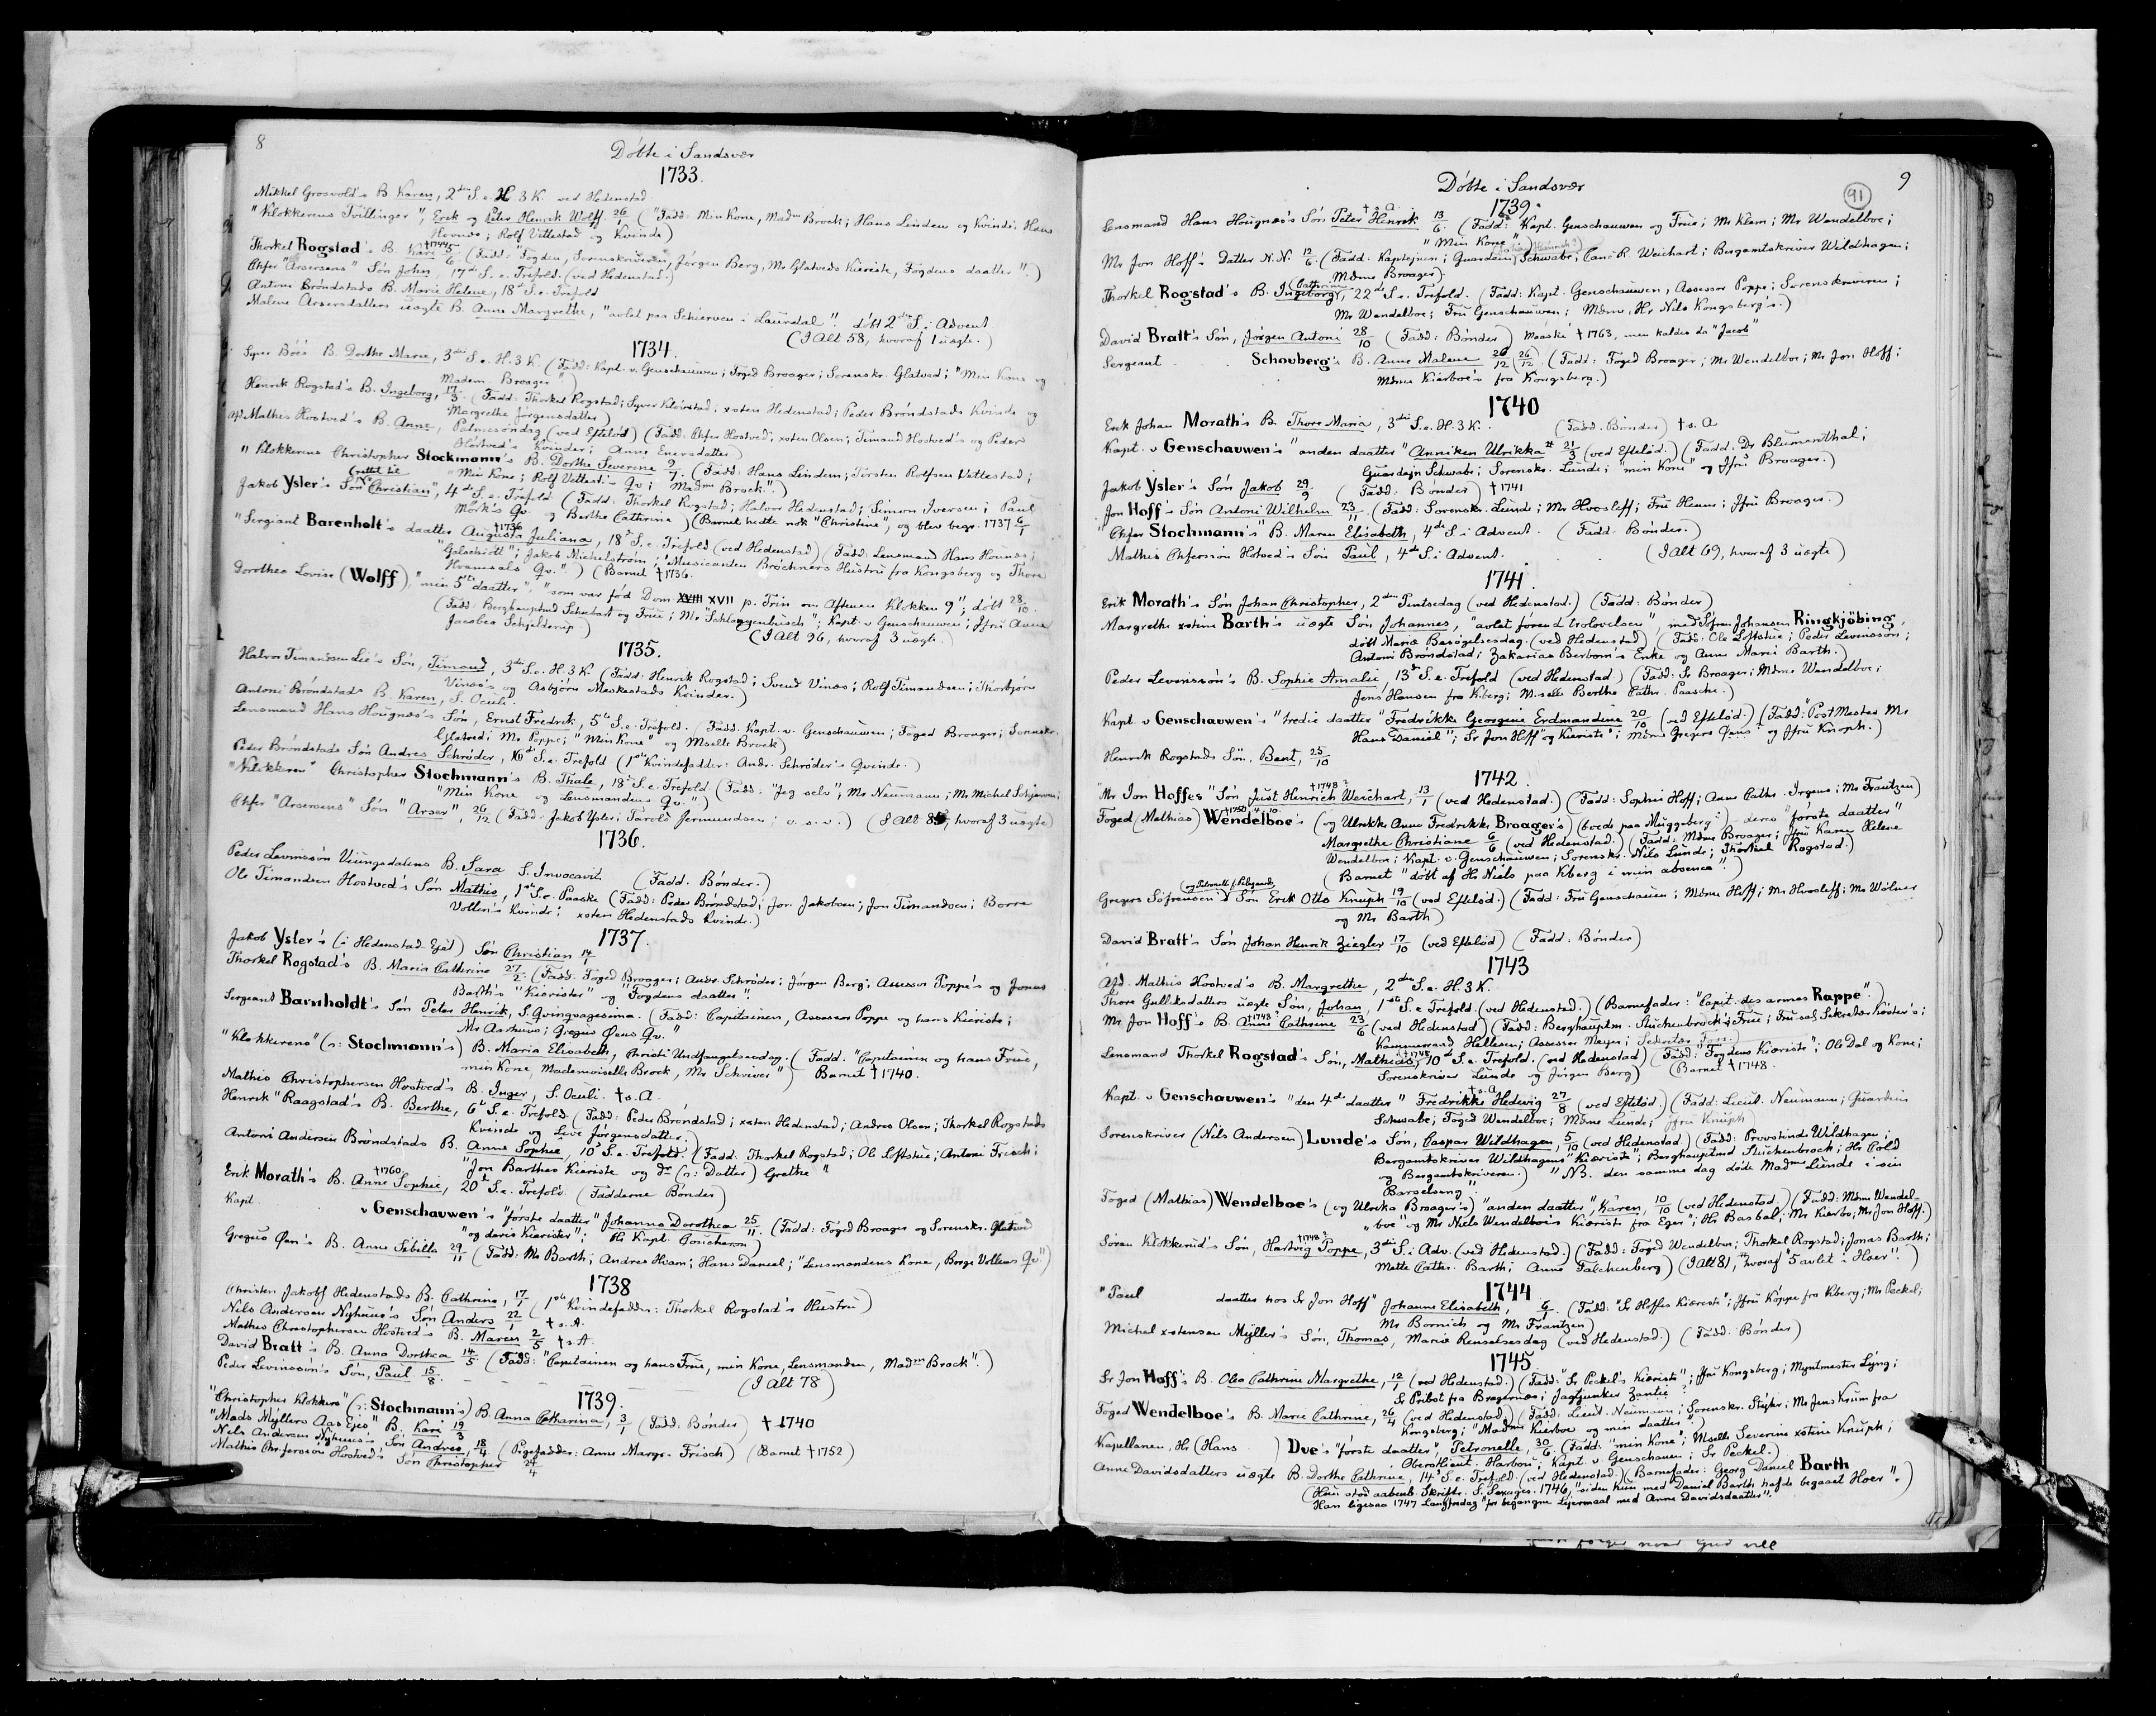 8
Døbte i Sandsvær
1733.
Mikkel Grosvold's B. Karen, 2den S. e. H. 3 K. ved Hedenstad
"Klokkerens Tvillinger", Erik og Peter Henrik Wolff 26/1 ("Fadd: Min Kone, Madm Brock; Hans Linden og Kvinde; Hans
Hovnes; Rolf Vittestad og Kvinde)
†1744
Thorkel Rogstad's B. Kari 5/6 (Fadd: "Fogden, Sorenskriveren, Jørgen Berg, Mr Glatveds Kieriste, Fogdens daatter".)
Chfer "Arsersens" Søn Johan, 17de S. e. Trefold. (ved Hedenstad.)
Antoni Brøndstads B. Marie Helene, 18de S. e. Trefold
Malene Arsersdatters uægte B. Anne Margrethe, "avlet paa Schierven i Laurdal". døbt 2den S. i Advent
(I Alt 58, hvoraf 1 uægte.)
1734.
Syver Bøes B. Dorthe Marie, 3die S. e. H. 3 K. (Fadd: Kapt. v. Genschauwen; Foged Broager; Sorenskr. Glatved; "Min Kone og
Madem Broager")
Henrik Rogstad's B. Ingeborg, 17/3. (Fadd: Thorkel Rogstad; Syver Kløvstad; xsten Hedenstad; Peder Brøndstads Kvinde og
Margrethe Jørgensdatter)
Mathis Hostved's B. Anne, Palmesøndag (ved Efteløb) (Fadd: Chfer Hostved; xsten Olsen; Timand Hostved's og Peder
Hostved's Kvinder; Anne Enersdatter)
"Klokkerens Christopher Stockmann's B. Dorthe Severine 9/7. (Fadd: Hans Linden; Torsten Rolfsen Vittestad;
"Min Kone; Rolf Vittest's Qv; Madme Brock".)
(rettet til
Jakob Ysler's Søn "Christian", 4de S. e. Trefold (Fadd: Thorkel Rogstad; Halvor Hedenstad; Simon Iversen; Paul
Mørk's Qv og Berthe Cathrine) (Barnet hedte nok "Christine", og blev begr. 1737 6/1
†1736
"Sergiant Barenholt's daatter Augusta Juliana, 18de S. e. Trefold (ved Hedenstad) (Fadd: Lensmand Hans Hounes;
"Golschiøtt"; Jakob Michelstrøm; "Musicanten Brøchners Hustru fra Kongsberg og Thore
Hvamsals Qv.") (Barnet †1736.
Dorothea Lovise (Wolff), "min 5te daatter", "som var fød Dom XVII p. Trin om Aftenen Klokken 9"; døbt 28/10.
(Fadd: Berghauptmd Schubart og Frue; Mr "Schlangenbusch"; Kapt. v Genschauwen; Jfru Anna
Jacobea Schjelderup.)
(I Alt 96, hvoraf 3 uægte.)
1735.
Halvor Timandsen Lie's Søn, Timand, 3die S. e. H. 3 K. (Fadd: Henrik Rogstad; Svend Vinæs; Rolf Timandsen; Thorbjørn
Vinæs's og Asbjørn Meskestads Kvinder.)
Antoni Brøndstads B. Karen, S. Oculi.
Lensmand Hans Hougnæs's Søn, Ernst Fredrik, 5te S. e. Trefold. (Fadd: Kapt. v. Genschauwen; Foged Broager; Sorenskr.
Glatved; Mr Poppe; "Min Kone" og Mselle Brock)
Peder Brøndstads Søn Andres Schrøder, 10de S. e. Trefold (1ste Kvindefadder: Andr. Schrøder's Qvinde.)
"Klokkeren" Christopher Stochmann's B. Thale, 18de S. e. Trefold (Fadd: "Jeg selv", Mr Neumann; Mr Michel Schjørven;
"Min Kone og Lensmandens Qv.")
Chfer "Arsersens" Søn "Arser", 26/12 (Fadd: Jakob Ysler; Tarold Jermundsen; o. s. v.) (I Alt 85, hvoraf 3 uægte)
1736.
Peder Levinssøn Viungdalens B. Sara S. Invocavit (Fadd. Bønder.)
Ole Timandsen Hostved's Søn Mathis, 1ste S. e. Paaske (Fadd: Peder Brøndstad; Jon Jakobsen; Jon Timandsen; Borre
Vollen's Kvinde; xsten Hedenstads Kvinde.)
1737.
Jakob Ysler's (i Hedenstad Ejet) Søn Christian 14/1
Thorkel Rogstad's B. Maria Cathrine 27/2. (Fadd: Foged Broager; Andr. Schrøder; Jørgen Berg; Assessor Poppe's og Jonas
Barth's "Kierister" og "Fogdens daatter".
Sergeant Barnholdt's Søn Peter Henrik, S. Qvinqvagesima. (Fadd: Capitainen, Assessor Poppe og hans Kieriste;
Mr Aarhuus; Gregus Øens Qv."
"Klokkerens" (ɔ: Stochmann's) B. Maria Elisabeth, Christi Undfangelsesdag. (Fadd. "Capitainen og hans Frue,
min Kone, Mademoiselle Brock, Mr Schriver") Barnet †1740.
Mathis Christophersen Hostved's B. Inger, S. Oculi. † s. A.
Henrik "Raagstad's B. Berthe, 6te S. e. Trefold. (Fadd: Peder Brøndstad; xsten Hedenstad; Andres Olsen; Thorkel Rogstads
Kvinde og Live Jørgensdatter.)
Antoni Andersen Brøndstads B. Anne Sophie, 10de S. e. Trefold. (Fadd: Thorkel Rogstad; Ole Loftstue; Antoni Frisch;
"Jon Barthes Kieriste og dr (ɔ: Datter) Grethe"
†1760
Erik Morath's B. Anne Sophie, 20de S. e. Trefold. (Fadderne Bønder)
Kapt. v Genschauwen's "første daatter" Johanna Dorothea 25/11. (Fadd: Foged Broager og Sorenskr. Glatved
"og deris Kierister"; Hr Kapt. Coucheron)
Gregus Øen's B. Anne Sibilla 29/11 (Fadd: Mr Barth; Andres Hvam; Hans Daniel; "Lensmandens Kone, Borge Vollens Qv")
1738
Christen Jakobs Hedenstads B. Cathrine, 17/1 (1ste Kvindefadder: Thorkel Rogstad's Hustru)
Nils Andersen Nyhuus's Søn Anders 22/1 † s. A.
Mathis Christophersen Hostved's B. Maren 2/5 † s. A.
David Bratt's B. Anna Dorthea 14/5 (Fadd: "Capitainen og hans Frue, min Kone, Lensmanden, Madm Brock".)
Peder Levinssøn's Søn, Paul 15/8.
(I Alt 78)
1739.
"Christopher Klokkers" (ɔ: Stochmann's) B. Anna Catharina, 3/1 (Fadd: Bønder) †1740
"Mads Myllers Aas Ejes" B. Kari 19/3
Nils Andersen Nyhuus's Søn Andres, 18/4 (Pigefadder: Anne Margr. Frisch) (Barnet †1752)
Mathis Chrfersøn Hostved's Søn Christopher 24/4
9
91
Døbte i Sandsvær
1739.
† s. A.
Lensmand Hans Hougnæs's Søn Peter Henrik 13/6 (Fadd: Kapt. Genschauwen og Frue; Mr Klem; Mr Wendelboe;
"Min Kone")
Mr Jon Hoff's Datter N. N. 12/6. (Fadd: Kaptejnen; Guardein Schwabe; Canc. R. Weichart; Bergamtskriver Wildhagen;
Mdme Broager)
Cathrine
Thorkel Rogstad's B. Ingeborg, 22de S. e. Trefold. (Fadd: Kapt. Genschauwen, Assessor Poppe; Sorenskriveren;
Mr Wendelboe; Fru Genschauwen; Mdme, Hr Nils Kongsberg's.)
David Bratt's Søn, Jørgen Antoni 28/10 (Fadd: Bønder) Maaske †1763, men kaldes da "Jacob"
Sergeant Schovberg's B. Anne Malene 26/12 (26/12) (Fadd: Foged Broager; Mr Wendelboe; Mr Jon Hoff;
Mdme Kierboe's fra Kongsberg.)
1740
Erik Johan Morath's B. Thore Maria, 3die S. e. H. 3 K. (Fadd. Bønder) † s. A
Kapt. v Genschauwen's "anden daatter" Anniken Ulrikka 21/3 (ved Efteløb) (Fadd: Dr Blumenthal;
Guardejn Schwabe; Sorenskr. Lunde; "min Kone" og Jfru Broager.)
Jakob Ysler's Søn Jakob 29/9 (Fadd: Bønder) †1741
Jon Hoff's Søn Antoni Wilhelm 23/11. (Fadd: Sorenskr. Lunde; Mr Hvosleff; Fru Henne; Jfru Broager.)
"Chfer Stochmann's" B. Maren Elisabeth, 4de S. i Advent. (Fadd: Bønder.)
Mathis Chferssøn Hotved's Søn Paul, 4de S. i Advent. (I Alt 69, hvoraf 3 uægte)
1741.
Erik Morath's Søn Johan Christopher, 2den Pintsedag (ved Hedenstad.) (Fadd: Bønder)
Margrethe xstine Barth's uægte Søn Johannes, "avlet forend trolovelsen" med Søfren Johansen Ringkjøbing,
døbt Mariæ Besøgelsesdag. (ved Hedenstad) (Fadd: Ole Loftstue; Peder Levinssøn;
Antoni Brøndstad; Zakarias Berbom's Enke og Anne Marie Barth.)
Peder Levinssøn's B. Sophie Amalie, 13de S. e. Trefold (ved Hedenstad) (Fadd: Sr Broager; Mdme Wendelboe;
Jens Hansen fra Kberg; Mselle Berthe Cathr. Paasche.)
Kapt. v Genschauwen's "tredie daatter" Fredrikke Georgine Erdmandine 20/10 (ved Efteløb.) (Fadd: "Post Mester Mr
Hans Daniel"; Sr Jon Hoff "og Kieriste"; Mdme Gregers Øens" og Jfru Knoph.)
Henrik Rogstads Søn, Bent, 25/10
1742.
†1748?
"Mr Jon Hoffes" Søn Just Henrich Weichart, 13/1 (ved Hedenstad.) (Fadd: Sophie Hoff; Anne Cathr. Irgens; Mr Frantzen)
Foged (Mathias) Wendelboe's (og Ulrikke Anna Fredrikke Broager's) (boede paa Muggeberg:) - deres "første daatter"
Margrethe Christiane 6/6 (ved Hedenstad.) (Fadd: Mdme Broager; Jfru Karen Helene
Wendelboe; Kapt. v. Genschauwen; Sorenskr. Nils Lunde; Thorkel Rogstad.)
(Barnet "døbt af Hr Niels paa Kberg i min absence".)
Gregers Søfrensen's Søn Erik Otto Knuph 19/10 (ved Efteløb.) (Fadd: Fru Genschauen; Mdme Hoff; Mr Hvosleff; Mr Wølner
og Mr Barth)
David Bratt's Søn Johan Henrik Ziegler 17/10 (ved Efteløb) (Fadd: Bønder)
1743
Afd. Mathis Hostved's B. Margrethe, 2den S. e. H. 3 K.
Thore Gulliksdatters uægte Søn, Johan, 1ste S. e. Trefold. (ved Hedenstad.) (Barnefader: "Capit. des armes Rappe".)
†1743?
Mr Jon Hoff's B. Anne Cathrine 23/6 (ved Hedenstad) (Fadd: Berghauptm. Stuckenbrock's Frue; Fru sal. Sekretær Køster's;
Kammerraad Hellesen; Assessor Meyer;
†1748
Lensmand Thorkel Rogstad's Søn, Mathias, 10de S. e. Trefold. (ved Hedenstad) (Fadd: "Fogdens Kieriste"; Ole Dal og Kone;
Sorenskriver Lunde og Jørgen Berg) (Barnet †1748.
† s. A.
Kapt. v Genschauwen's "den 4de daatter" Fredrikke Hedewig 27/8 (ved Efteløb.) (Fadd: Lieut. Neumann; Guardein
Schwabe; Foged Wendelboe; Mdme Lunde; Jfru Knuph
Sorenskriver (Nils Andersen) Lunde's Søn, Caspar Wildhagen, 5/10 (ved Hedenstad.) (Fadd: Provstinde Wildhagen;
Bergamtskriver Wildhagens "Kieriste"; Berghauptmd Stuckenbrock; Hr Cold
og Bergamtskriveren.) "NB. den samme dag døde Madme Lunde i sin
Barselseng".
Foged (Mathias) Wendelboe's (og Ulrikka Broager's) "anden daatter", Karen, 10/10 (ved Hedenstad.) (Fadd: Mdme Wendel-
"boe" og Mr Niels Wendelboe's Kieriste fra Eger"; Hr Basbøl; Mr Kierbo; Mr Jon Hoff.)
†1748?
Søren Klokkerud's Søn, Hartvig Poppe, 3die S. i Adv. (ved Hedenstad.) (Fadd: Foged Wendelboe; Thorkel Rogstad; Jonas Barth;
Mette Cathr. Barth; Anne Falchenberg) (I Alt 81, hvoraf "5 avlet i Hoer".)
1744
"Paul daatter hos Sr Jon Hoff" Johanne Elisabeth, 6/1. (Fadd: "Sr Hoffes Kieriste"; Jfru Køppe fra Kberg; Mr Peckel;
Mr Bornich og Mr Frantzen)
Michel xstensen Mÿller's Søn, Thomas, Mariæ Renselsesdag (ved Hedenstad.) (Fadd: Bønder)
1745.
Sr Jon Hoff's B. Olea Cathrine Margrethe, 12/1 (ved Hedenstad.) (Fadd: "Sr Peckel's Kieriste"; Jfru Kongsberg; Myntmester Lyng;
Sr Pribst fra Bragernæs; Jagtjunker Zantie?
Foged Wendelboe's B. Marie Cathrine, 26/4 (ved Hedenstad) (Fadd: Lieut. Neumann; Sorenskr. Stÿkr; Mr Jens Krum fra
Kongsberg; "Madme Kierboe og min daatter".)
Kapellanen, Hr (Hans ) Due's "første daatter", Petronelle, 30/6 (Fadd: "min Kone"; Mselle Severine xstine Knuph;
Oberstlieut. Harbou; Kapt. v. Genschauen; Sr Peckel.)
Anne Davidsdatters uægte B. Dorthe Cathrine, 14de S. e. Trefold. (ved Hedenstad.) (Barnefader: Georg Daniel Barth
(Hun stod aabenb. Skrifte. S. Sexages. 1746, "siden hun med Daniel Barth hafde begaaet Hoer".)
Han ligesaa 1747 Langfredag "for begangne Lejermaal med Anne Davidsdaatter".